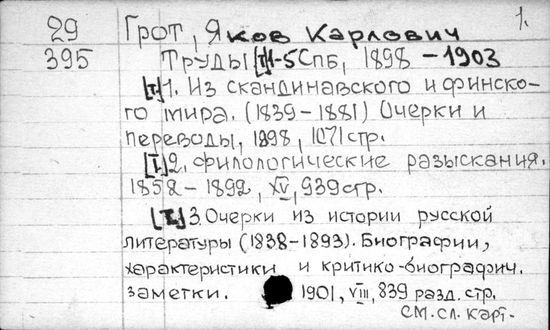 29 Грот, Яков Карлович 1.
395 Труды [т.] 1-5 Спб, 1898 - 1903
[т.] 1. Из скандинавского и финско-
го мира. (1839-1881) Очерки и
переводы, 1898, 1071 стр.
[т.] 2. Филологические разыскания.
1852 - 1892, XV, 939 стр.
[т.] 3. Очерки из истории русской
литературы (1838-1893). Биографии,
характеристики и критико-биографич.
заметки. 1901, VIII, 839 разд. стр.
см. сл. карт.